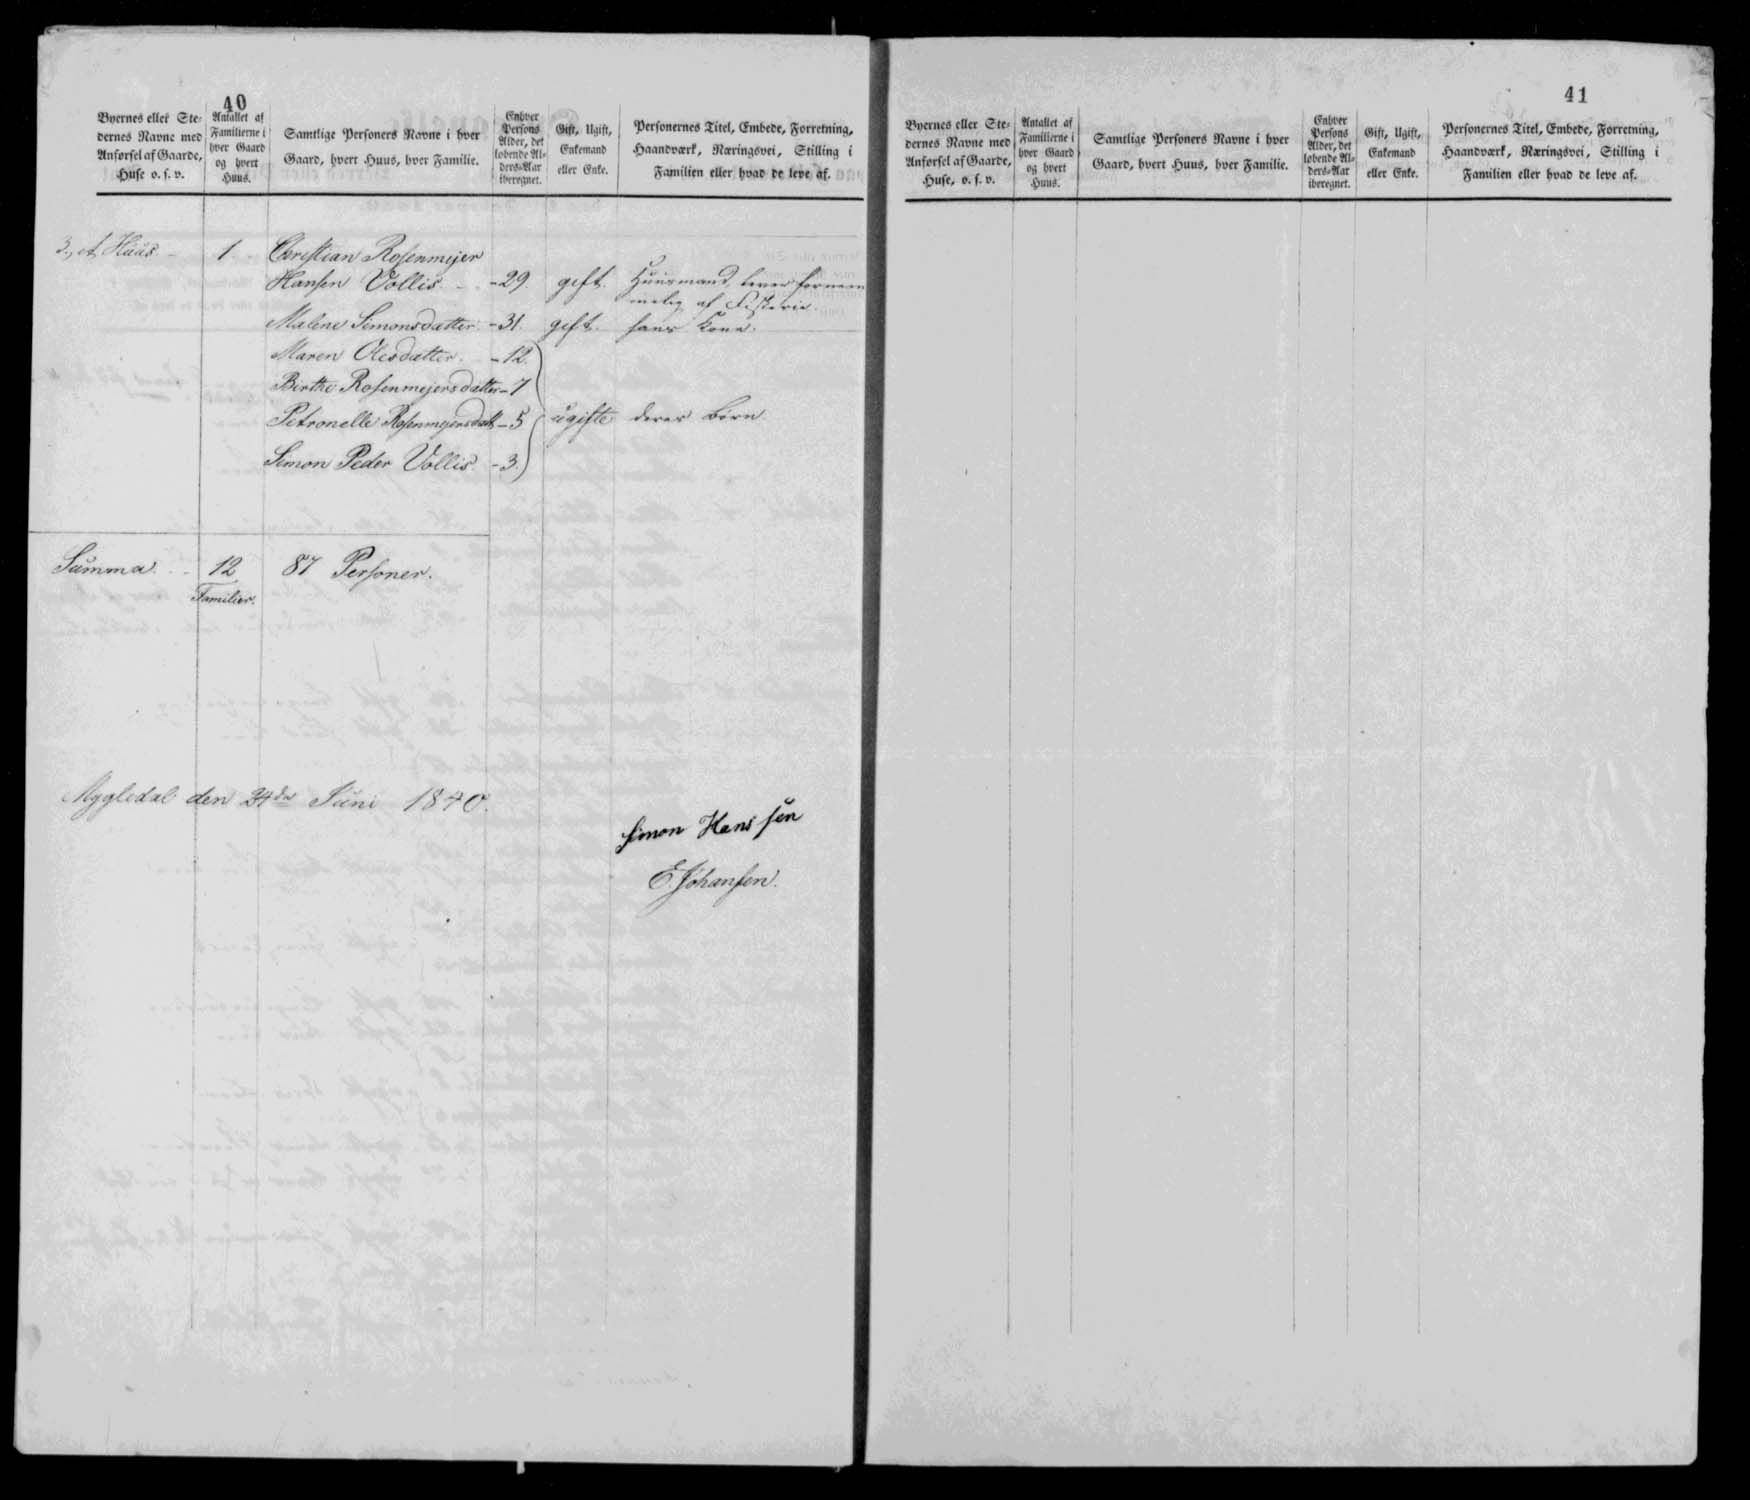 40
Byernes eller Ste-
dernes Navne med
Anførsel af Gaarde,
Huse o. s. v.
Antallet af
Familierne i
hver Gaard
og hvert
Huus.
Samtlige Personers Navne i hver
Gaard, hvert Huus, hver Familie.
Enhver
Persons
Alder, det
løbende Al-
ders-Aar
iberegnet.
Gift, Ugift,
Enkemand
eller Enke.
Personernes Titel, Embede, Forretning,
Haandværk, Næringsvei, Stilling i
Familien eller hvad de leve af.
3., et Huus 1 Christian Rosenmejer
Hansen Vollis - 29. gift. Huusmand, lever fornem
melig af Fiskerie.
Malene Simonsdatter. - 31. gift. hans Kone.
Maren Olesdatter. - 12.
Birthe Rosenmejersdatter - 7
Petronelle Rosenmejersdatt - 5 ugifte deres Børn
Simon Peder Vollis. - 3.
Summa. 12 87 Personer.
Familier.
Mygledal den 24de Juni 1840.
Simon Hanssen
E. Johansen.
41
Byernes eller Ste-
dernes Navne med
Anførsel af Gaarde,
Huse, o. s. v.
Antallet af
Familierne i
hver Gaard
og hvert
Huus.
Samtlige Personers Navne i hver
Gaard, hvert Huus, hver Familie.
Enhver
Persons
Alder, det
løbende Al-
ders-Aar
iberegnet.
Gift, Ugift,
Enkemand
eller Enke.
Personernes Titel, Embede, Forretning,
Haandværk, Næringsvei, Stilling i
Familien eller hvad de leve af.